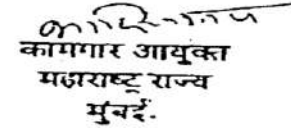 कामगार आयुक्त
महाराष्ट्र राज्य
मुंबई.